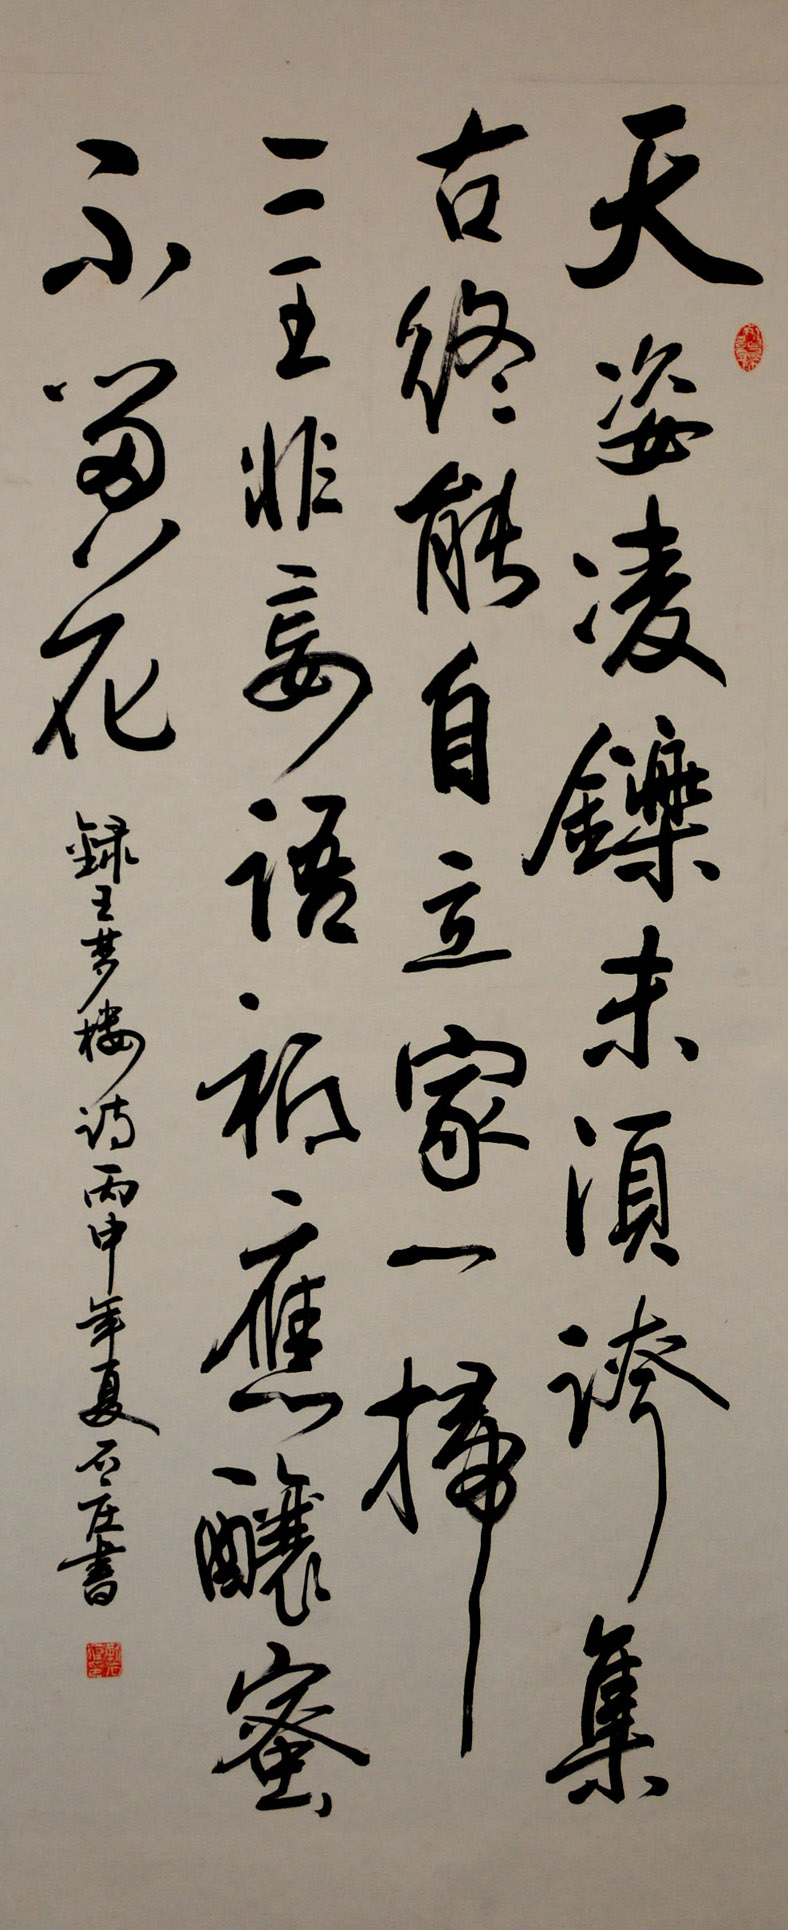 天姿凌鑠未須誇集
古終能自立家一掃
二王非妄語秖應釀蜜
不留花
録王梦楼诗丙申年夏石庄書